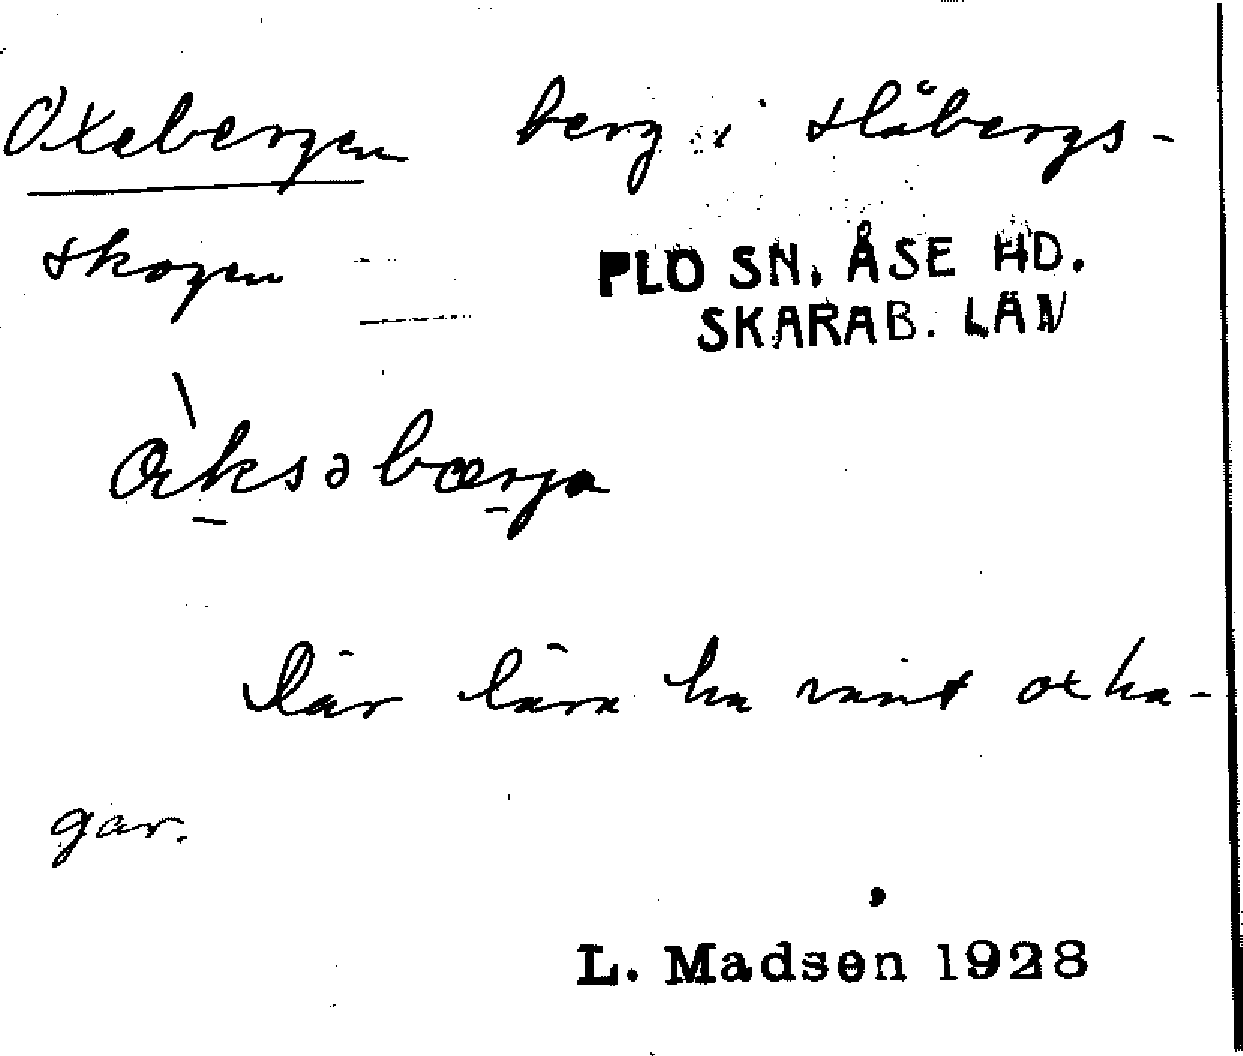 Oxebergen berg i Slåbergs-
skogen
FLO SN. ÅSE HD.
SKARAB. LÄN
òksəbærja
Där lära ha varit oxha-
gar.
L. Madsen 1928